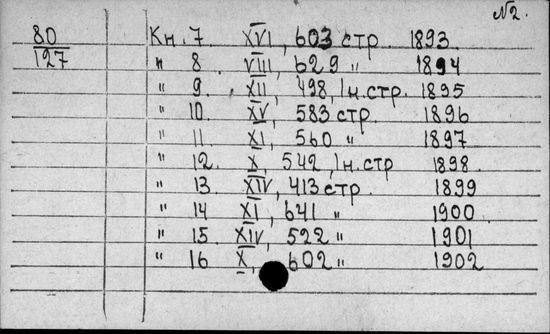 №2.
80
127
Кн. 7 XVI, 603 стр. 1893.
" 8 VIII, 629 " 1894
" 9. XII, 498, 1 н. стр. 1895
" 10. XV, 583 стр. 1896
" 11. XI, 560 " 1897.
" 12. X, 542, 1 н. стр 1898.
" 13 XIV, 413 стр. 1899
" 14 XI, 641 " 1900.
" 15. XIV, 522 " 1901
" 16 X, 602 " 1902